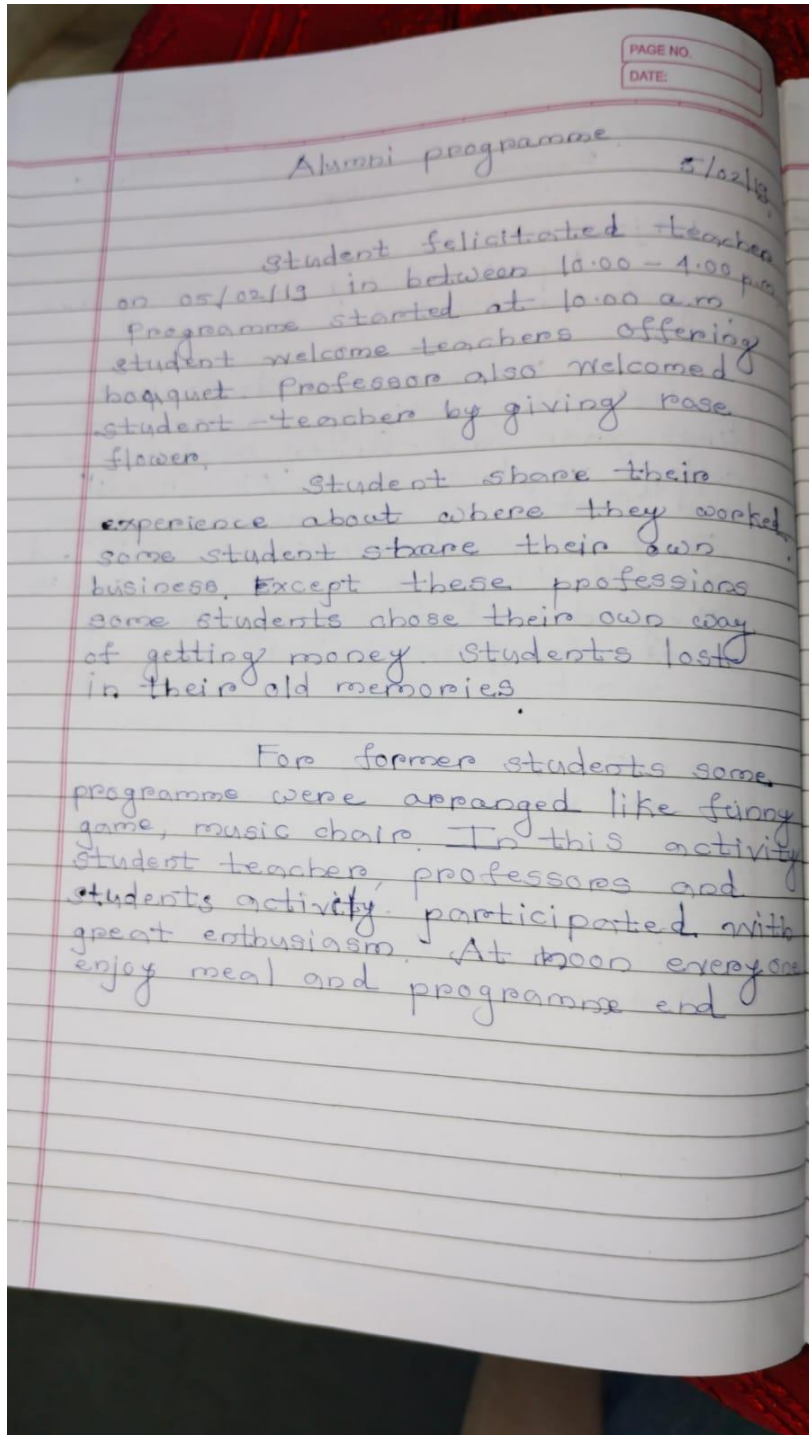 PAGE NO.
DATE:
Alumni programme.
5/02/19.
Student felicitated teacher
on 05/02/19 in between 10.00 - 4.00 p.m
Programme started at 10.00 a.m
student welcome teachers offering
boququet. Professor also welcomed
student-teacher by giving rose
flower.
Student share their
experience about where they worked.
some student share their own
business. Except these professions
some students chose their own way
of getting money. Students lost
in their old memories.
For former students some
programme were arranged like funny
game, music chair. In this activity
student teacher, professors and
students activity participated with
great enthusiasm. At noon everyone
enjoy meal and programme end